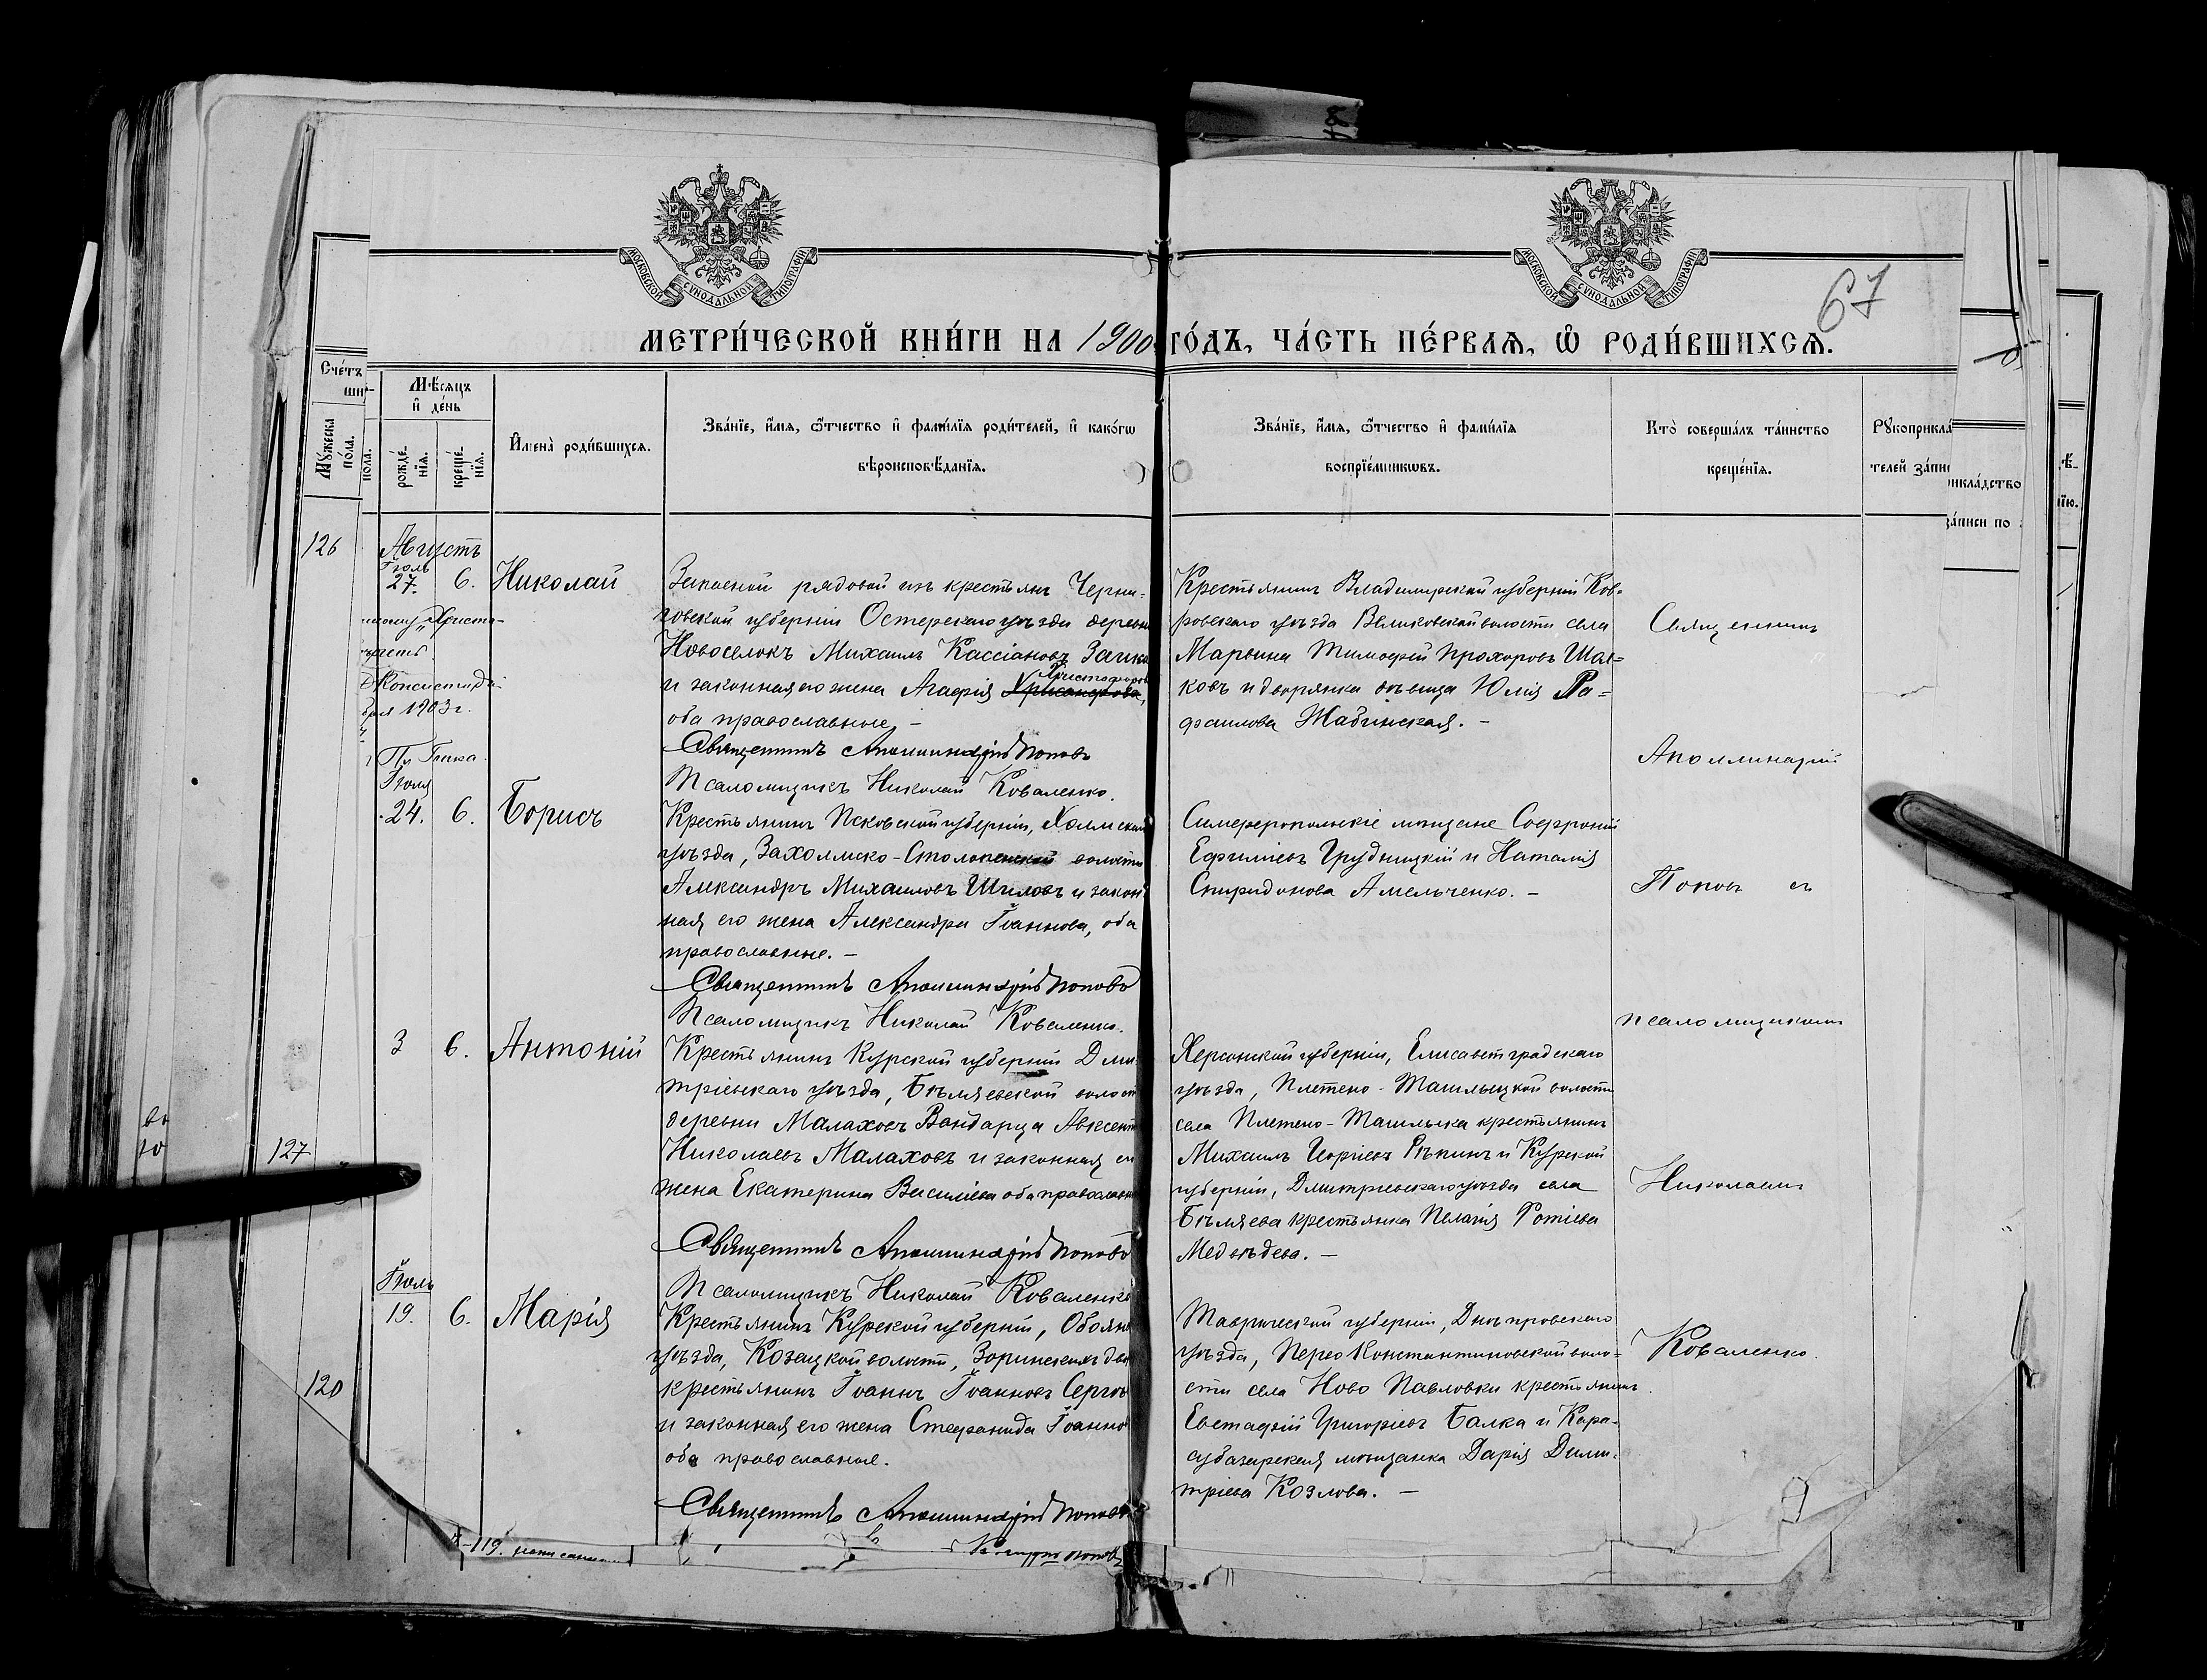 МОСКОВСКОЙ СУНОДАЛЬНОЙ ТИПОГРАФІИ
МОСКОВСКОЙ СУНОДАЛЬНОЙ ТИПОГРАФІИ
67
МЕТРИ́ЧЕСКОЙ КНИ́ГИ НА 1900 ГО́ДЪ, ЧА́СТЬ ПЕ́РВАѦ, Ѡ РОДИ́ВШИХСѦ.
Сче́тъ
Мѹ́жеска по́ла.
Мѣ́сѧцъ и҆ де́нь
рожде́нїѧ.
креще́нїѧ.
И҆мена̀ роди́вшихсѧ.
Зва́нїе, и҆́мѧ, ѻ҆́тчество и҆ фамилїѧ роди́телей, и҆ како́гѡ
вѣроисповѣ́данїѧ.
Зва́нїе, и҆́мѧ, ѻ҆́тчество и҆ фами́лїѧ
воспрїе́мникѡвъ.
Кто̀ соверша́лъ та́инство
креще́нїѧ.
Рꙋкоприкла
телей за́пи
икла́дство
за́писи по
126
Августъ
Іюль
27. 6. Николай
Запасной рядовой изъ крестьянъ Черни-
говской губерніи Остерскаго уѣзда деревни
Новоселокъ Михаилъ Кассіановъ Заика
и законная его жена Агафія Хрисанфова, Христофоров
оба православные. –
Священникъ Аполлинарій Поповъ
Псаломщикъ Николай Коваленко.
Крестьянинъ Владимірской губерніи Ков-
ровскаго уѣзда Великовской волости села
Марьина Тимофей Прохоровъ Шат=
ковъ и дворянка дѣвица Юлія Ра=
фаилова Жабинская. –
Священникъ
Аполлинарій
Поповъ съ
псаломщикомъ
Николаемъ
Коваленко.
Консисторіи
1903 г.
Іюля
24. 6. Борисъ
Крестьянинъ Псковской губерніи, Холмскаго
уѣзда, Захолмско-Столопенской волости
Александръ Михаиловъ Шиловъ и закон
ная его жена Александра Іоаннова, оба
православные. –
Священникъ Аполлинарій Поповъ
Псаломщикъ Николай Коваленко.
Симферопольскіе мѣщане Софроній
Ефиміевъ Грудницкій и Наталія
Спиридонова Амельченко. –
127
3 6. Антоній
Крестьянинъ Курской губерніи Дми
тріевскаго уѣзда, Бѣляевской волост
деревни Малаховъ Вандарца Авксент
Николаевъ Малаховъ и законная ег
жена Екатерина Василіева оба православн
Священникъ Аполлинарій Поповъ
Псаломщикъ Николай Коваленко
Херсонской губерніи, Елисаветградскаго
уѣзда, Плетено-Ташлыцкой волости
села Плетено-Ташлыка крестьянинъ
Михаилъ Георгіевъ Рѣпинъ и Курской
губерніи, Дмитріевскаго уѣзда села
Бѣляева крестьянка Пелагія Фотіева
Медвѣдева. –
Іюль
19. 6. Марія
120
Крестьянинъ Курской губерніи, Обоян
уѣзда, Козацкой волости, Зоринскихъ дв
крестьянинъ Іоаннъ Іоанновъ Сергѣ
и законная его жена Стефанида Іоанно
оба православные.
Священникъ Аполлинарій Поповъ
Таврической губерніи, Днѣпровскаго
уѣзда, Перво Константиновской воло=
сти села Ново Павловки крестьянинъ
Евстафій Григоріевъ Балка и Кара-
субазарская мѣщанка Дарія Дими-
тріева Козлова. –
119.